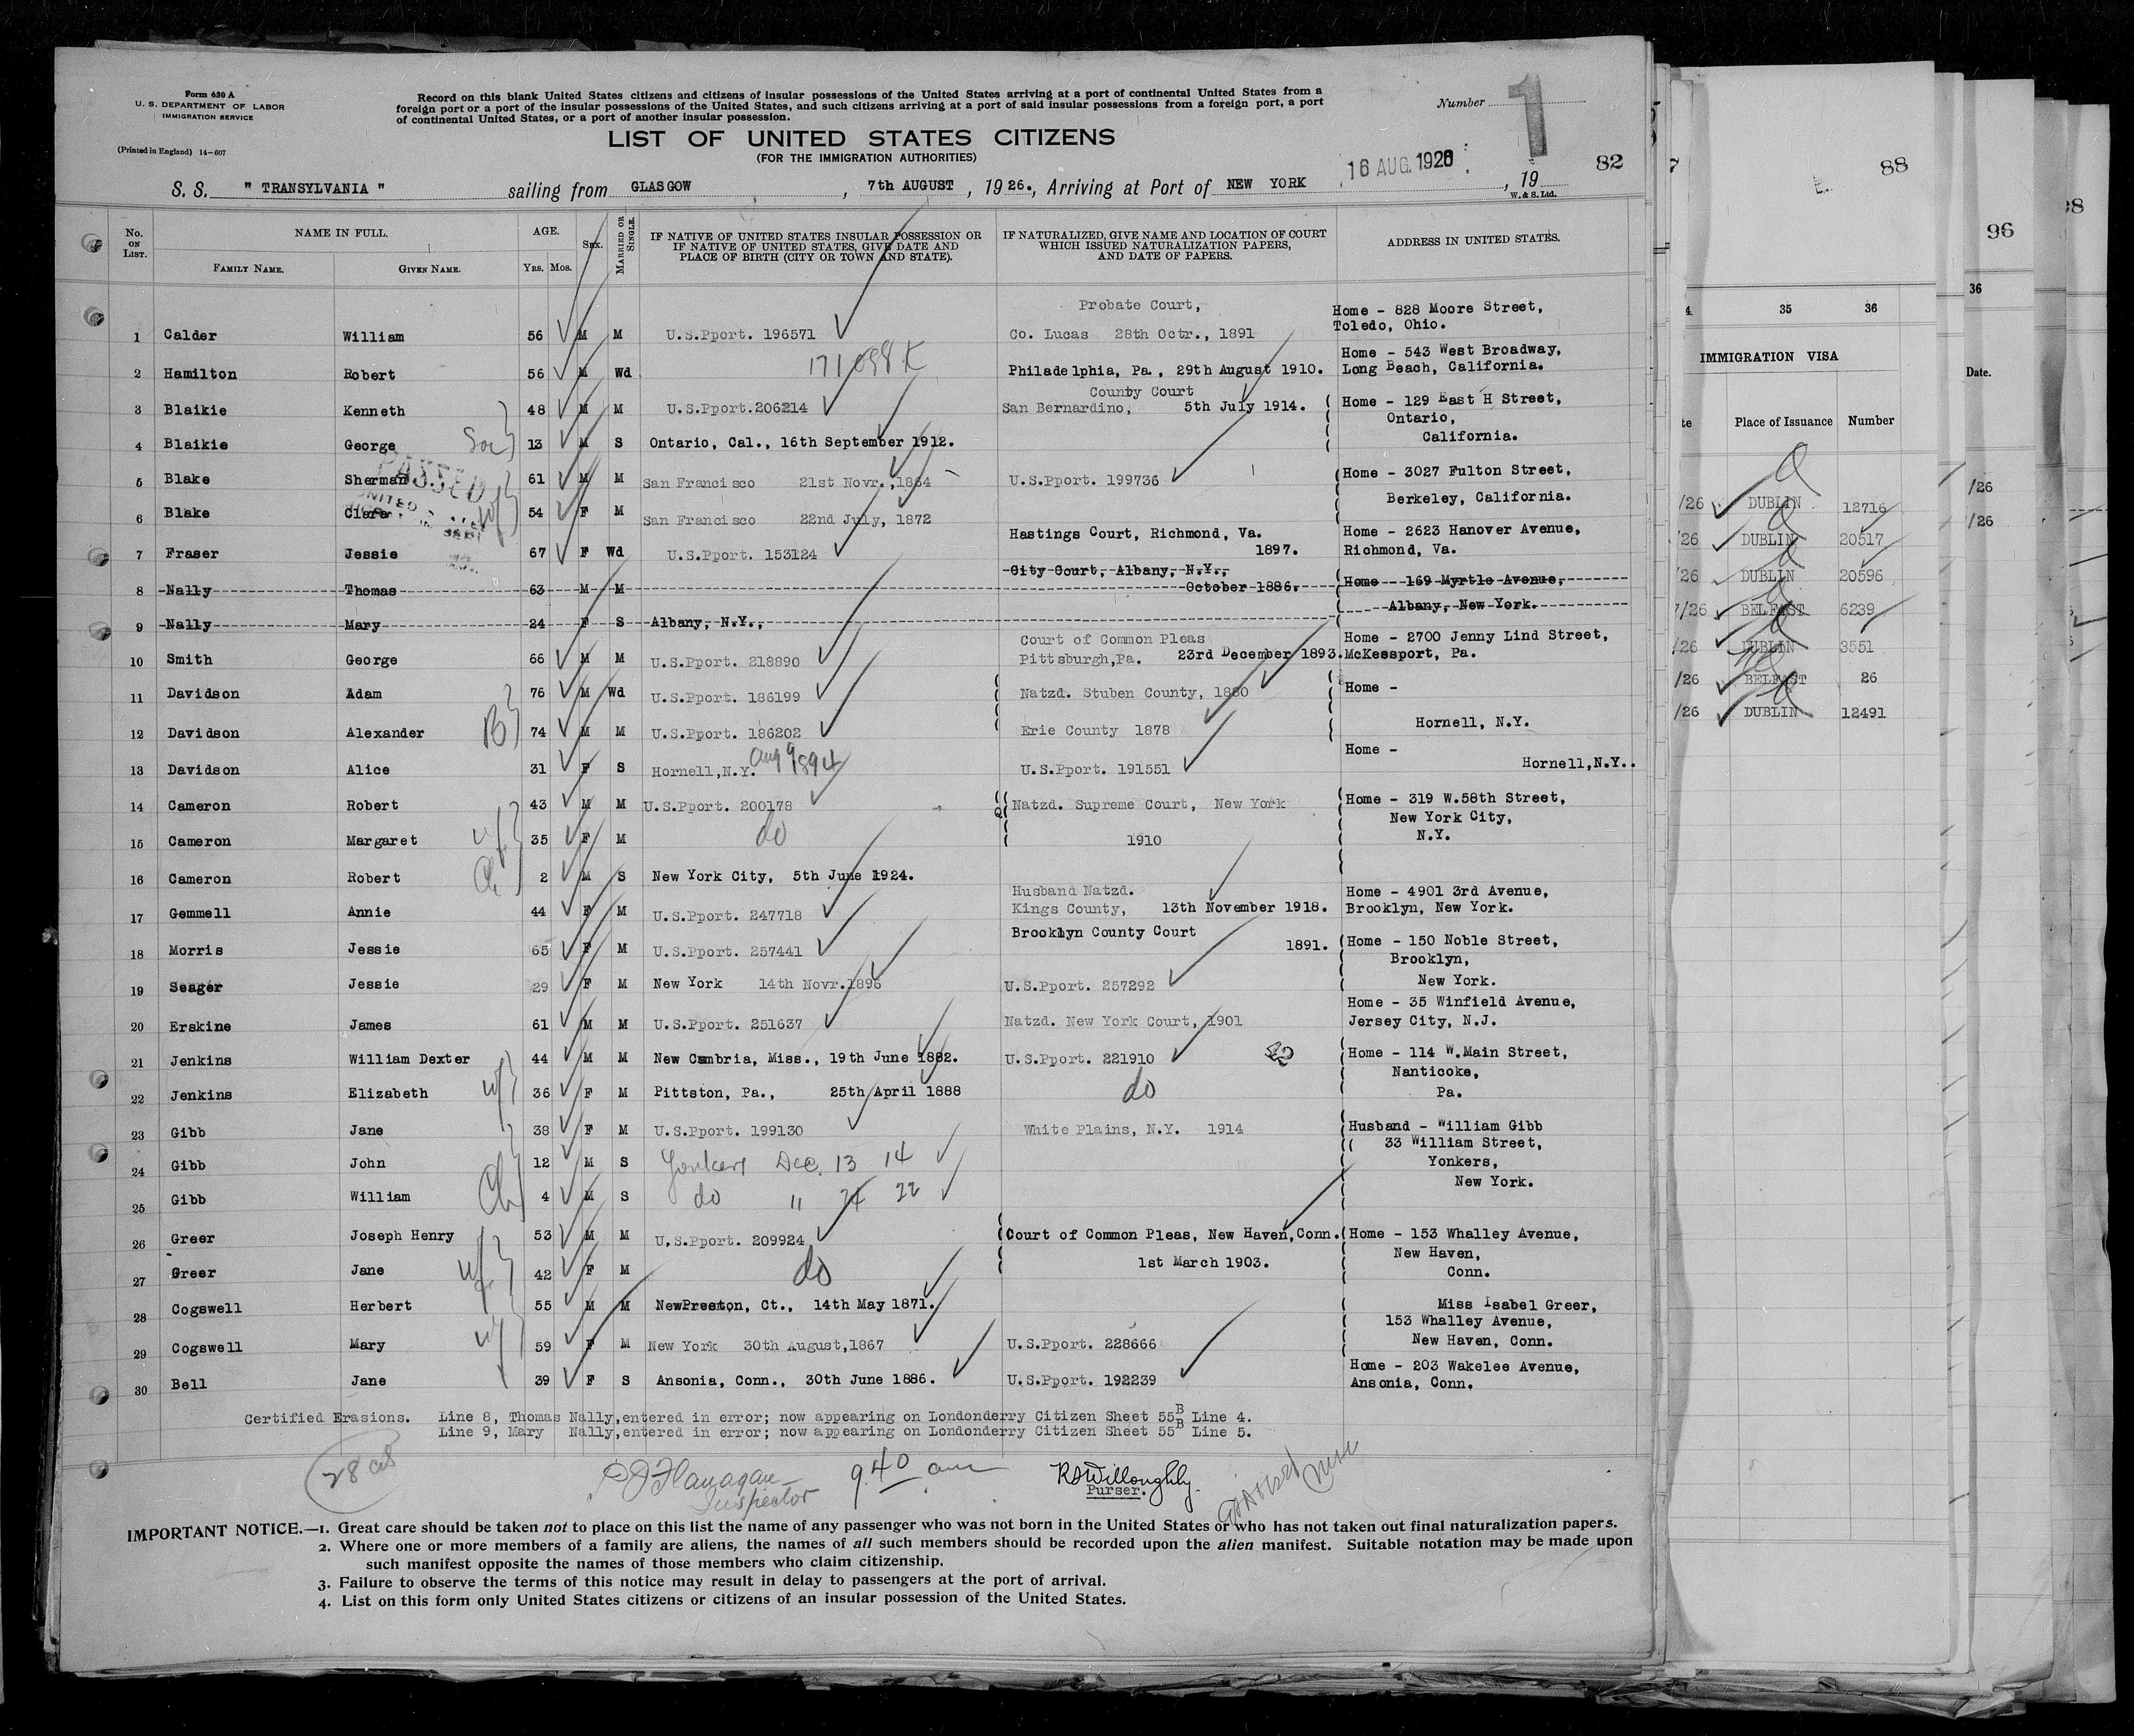 Form 630 A
U. S. DEPARTMENT OF LABOR
IMMIGRATION SERVICE
(Printed in England) 14-607
Record on this blank United States citizens and citizens of insular possessions of the United States arriving at a port of continental United States from a
foreign port or a port of the insular possessions of the United States, and such citizens arriving at a port of said insular possessions from a foreign port, a port
of continental United States, or a port of another insular possession.
LIST OF UNITED STATES CITIZENS
(FOR THE IMMIGRATION AUTHORITIES)
Number 1
16 AUG. 1926
82
S. S. " TRANSYLVANIA " sailing from GLASGOW, 7th AUGUST, 1926., Arriving at Port of NEW YORK, 19
W. & S. Ltd.
No. ON LIST. NAME IN FULL. FAMILY NAME. GIVEN NAME. AGE. YRS. MOS. SEX. MARRIED OR SINGLE.
IF NATIVE OF UNITED STATES INSULAR POSSESSION OR
IF NATIVE OF UNITED STATES, GIVE DATE AND
PLACE OF BIRTH (CITY OR TOWN AND STATE).
IF NATURALIZED, GIVE NAME AND LOCATION OF COURT
WHICH ISSUED NATURALIZATION PAPERS,
AND DATE OF PAPERS.
ADDRESS IN UNITED STATES.
Probate Court, Home - 828 Moore Street,
1 Calder William 56 M M U.S.Pport. 196571 Co. Lucas 28th Octr., 1891 Toledo, Ohio.
Home - 543 West Broadway,
2 Hamilton Robert 56 M Wd 171098 K Philadelphia, Pa., 29th August 1910. Long Beach, California.
County Court
3 Blaikie Kenneth 48 M M U.S.Pport.206214 San Bernardino, 5th July 1914. Home - 129 East H Street,
Ontario,
4 Blaikie George 13 M S Ontario, Cal., 16th September 1912. California.
5 Blake Sherman 61 M M San Francisco 21st Novr.,1864 U.S.Pport. 199736 Home - 3027 Fulton Street,
Berkeley, California.
6 Blake Clara wf 54 F M San Francisco 22nd July, 1872
Hastings Court, Richmond, Va. Home - 2623 Hanover Avenue,
7 Fraser Jessie 67 F Wd U.S.Pport. 153124 1897. Richmond, Va.
City Court, Albany, N.Y.,
8 Nally Thomas 63 M M October 1886. Home - 169 Myrtle Avenue,
Albany, New York.
9 Nally Mary 24 F S Albany, N.Y.,
Court of Common Pleas Home - 2700 Jenny Lind Street,
10 Smith George 66 M M U.S.Pport. 218890 Pittsburgh,Pa. 23rd December 1893. McKeesport, Pa.
11 Davidson Adam 76 M Wd U.S.Pport. 186199 Natzd. Stuben County, 1880 Home -
Hornell, N.Y.
12 Davidson Alexander 74 M M U.S.Pport. 186202 Erie County 1878
Home -
13 Davidson Alice 31 F S Hornell,N.Y. Aug 9 1894 U.S.Pport. 191551 Hornell,N.Y..
14 Cameron Robert 43 M M U.S.Pport. 200178 Natzd. Supreme Court, New York Home - 319 W.58th Street,
New York City,
15 Cameron Margaret wf 35 F M do 1910 N.Y.
16 Cameron Robert Ch 2 M S New York City, 5th June 1924.
Husband Natzd. Home - 4901 3rd Avenue,
17 Gemmell Annie 44 F M U.S.Pport. 247718 Kings County, 13th November 1918. Brooklyn, New York.
Brooklyn County Court
18 Morris Jessie 65 F M U.S.Pport. 257441 1891. Home - 150 Noble Street,
Brooklyn,
19 Seager Jessie 29 F M New York 14th Novr.1896 U.S.Pport. 257292 New York.
Home - 35 Winfield Avenue,
20 Erskine James 61 M M U.S.Pport. 251637 Natzd. New York Court, 1901 Jersey City, N.J.
21 Jenkins William Dexter 44 M M New Cambria, Miss., 19th June 1882. U.S.Pport. 221910 Home - 114 W.Main Street,
Nanticoke,
22 Jenkins Elizabeth wf 36 F M Pittston, Pa., 25th April 1888 do Pa.
23 Gibb Jane 38 F M U.S.Pport. 199130 White Plains, N.Y. 1914 Husband - William Gibb
33 William Street,
24 Gibb John 12 M S Yonkers Dec. 13 14 Yonkers,
New York.
25 Gibb William Ch 4 M S do " 24 22
26 Greer Joseph Henry 53 M M U.S.Pport. 209924 Court of Common Pleas, New Haven,Conn. Home - 153 Whalley Avenue,
New Haven,
27 Greer Jane wf 42 F M do 1st March 1903. Conn.
28 Cogswell Herbert 55 M M NewPreston, Ct., 14th May 1871. Miss Isabel Greer,
153 Whalley Avenue,
29 Cogswell Mary wf 59 F M New York 30th August,1867 U.S.Pport. 228666 New Haven, Conn.
Home - 203 Wakelee Avenue,
30 Bell Jane 39 F S Ansonia, Conn., 30th June 1886. U.S.Pport. 192239 Ansonia, Conn.
Certified Erasions. Line 8, Thomas Nally,entered in error; now appearing on Londonderry Citizen Sheet 55B Line 4.
Line 9, Mary Nally,entered in error; now appearing on Londonderry Citizen Sheet 55B Line 5.
P J Flanagan
Inspector
9.40 am
RSWilloughby.
Purser.
IMPORTANT NOTICE.—1. Great care should be taken not to place on this list the name of any passenger who was not born in the United States or who has not taken out final naturalization papers.
2. Where one or more members of a family are aliens, the names of all such members should be recorded upon the alien manifest. Suitable notation may be made upon
such manifest opposite the names of those members who claim citizenship.
3. Failure to observe the terms of this notice may result in delay to passengers at the port of arrival.
4. List on this form only United States citizens or citizens of an insular possession of the United States.
88
35 36
IMMIGRATION VISA
Place of Issuance Number
/26 DUBLIN 12716
/26 DUBLIN 20517
/26 DUBLIN 20596
7/26 BELFAST 6239
/26 DUBLIN 3551
/26 BELFAST 26
/26 DUBLIN 12491
96
36
Date.
/26
/26